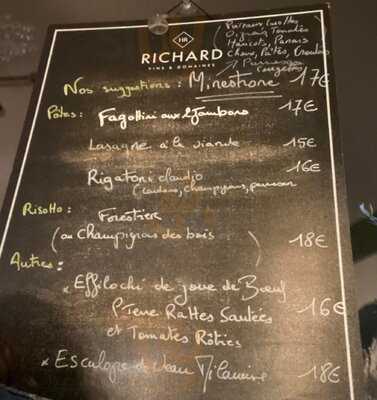 HR
RICHARD
VINS & DOMAINES
Poireaux Carottes
Oignais Tomates
Haricots, Panais
Choux, Pâtes, Croutons
Parmesan
Nos suggestions : Minestrone 17€
Pâtes : Fagottini aux 2 Jambons 17€
Lasagne à la viande 15€
Rigatoni claudio 16€
(lardons, champignons, parmesan
Risotto : Forestier
(aux Champignons des bois) 18€
Autres :
* Effiloché de joue de Bœuf
Rattes Sautées 16€
et Tomates Rôties
* Escalope de Veau Milanaise 18€